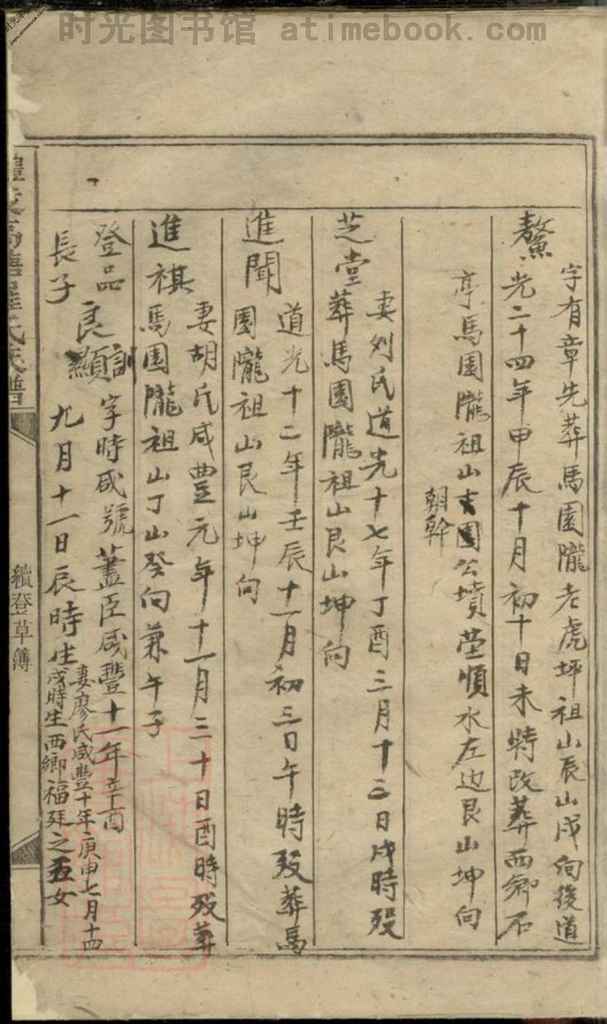 时光图书馆 atimebook.com
字有章先葬馬園隴老虎坪祖山辰山戌向後道
鰲 光二十四年申辰十月初十日未特改葬西鄉石
亭馬園隴祖山玄園公墳塋順水左边艮山坤向
朝幹
妻刘氏道光十七年丁酉三月十三日戌時殁
芝堂 葬馬園隴祖山艮山坤向
道光十二年壬辰十一月初三日午時殁葬馬
進聞 園隴祖山艮山坤向
妻胡氏咸豊元年十一月三十日酉時殁葬
進祺 馬園隴祖山丁山癸向兼午子
登品 良訓 字時咸號藎臣咸豐十一年辛酉
長子 顯 九月十一日辰時生
妻廖氏咸豐十年庚申七月十四
戌時生西鄉福廷之五女
氏族譜
續登草簿